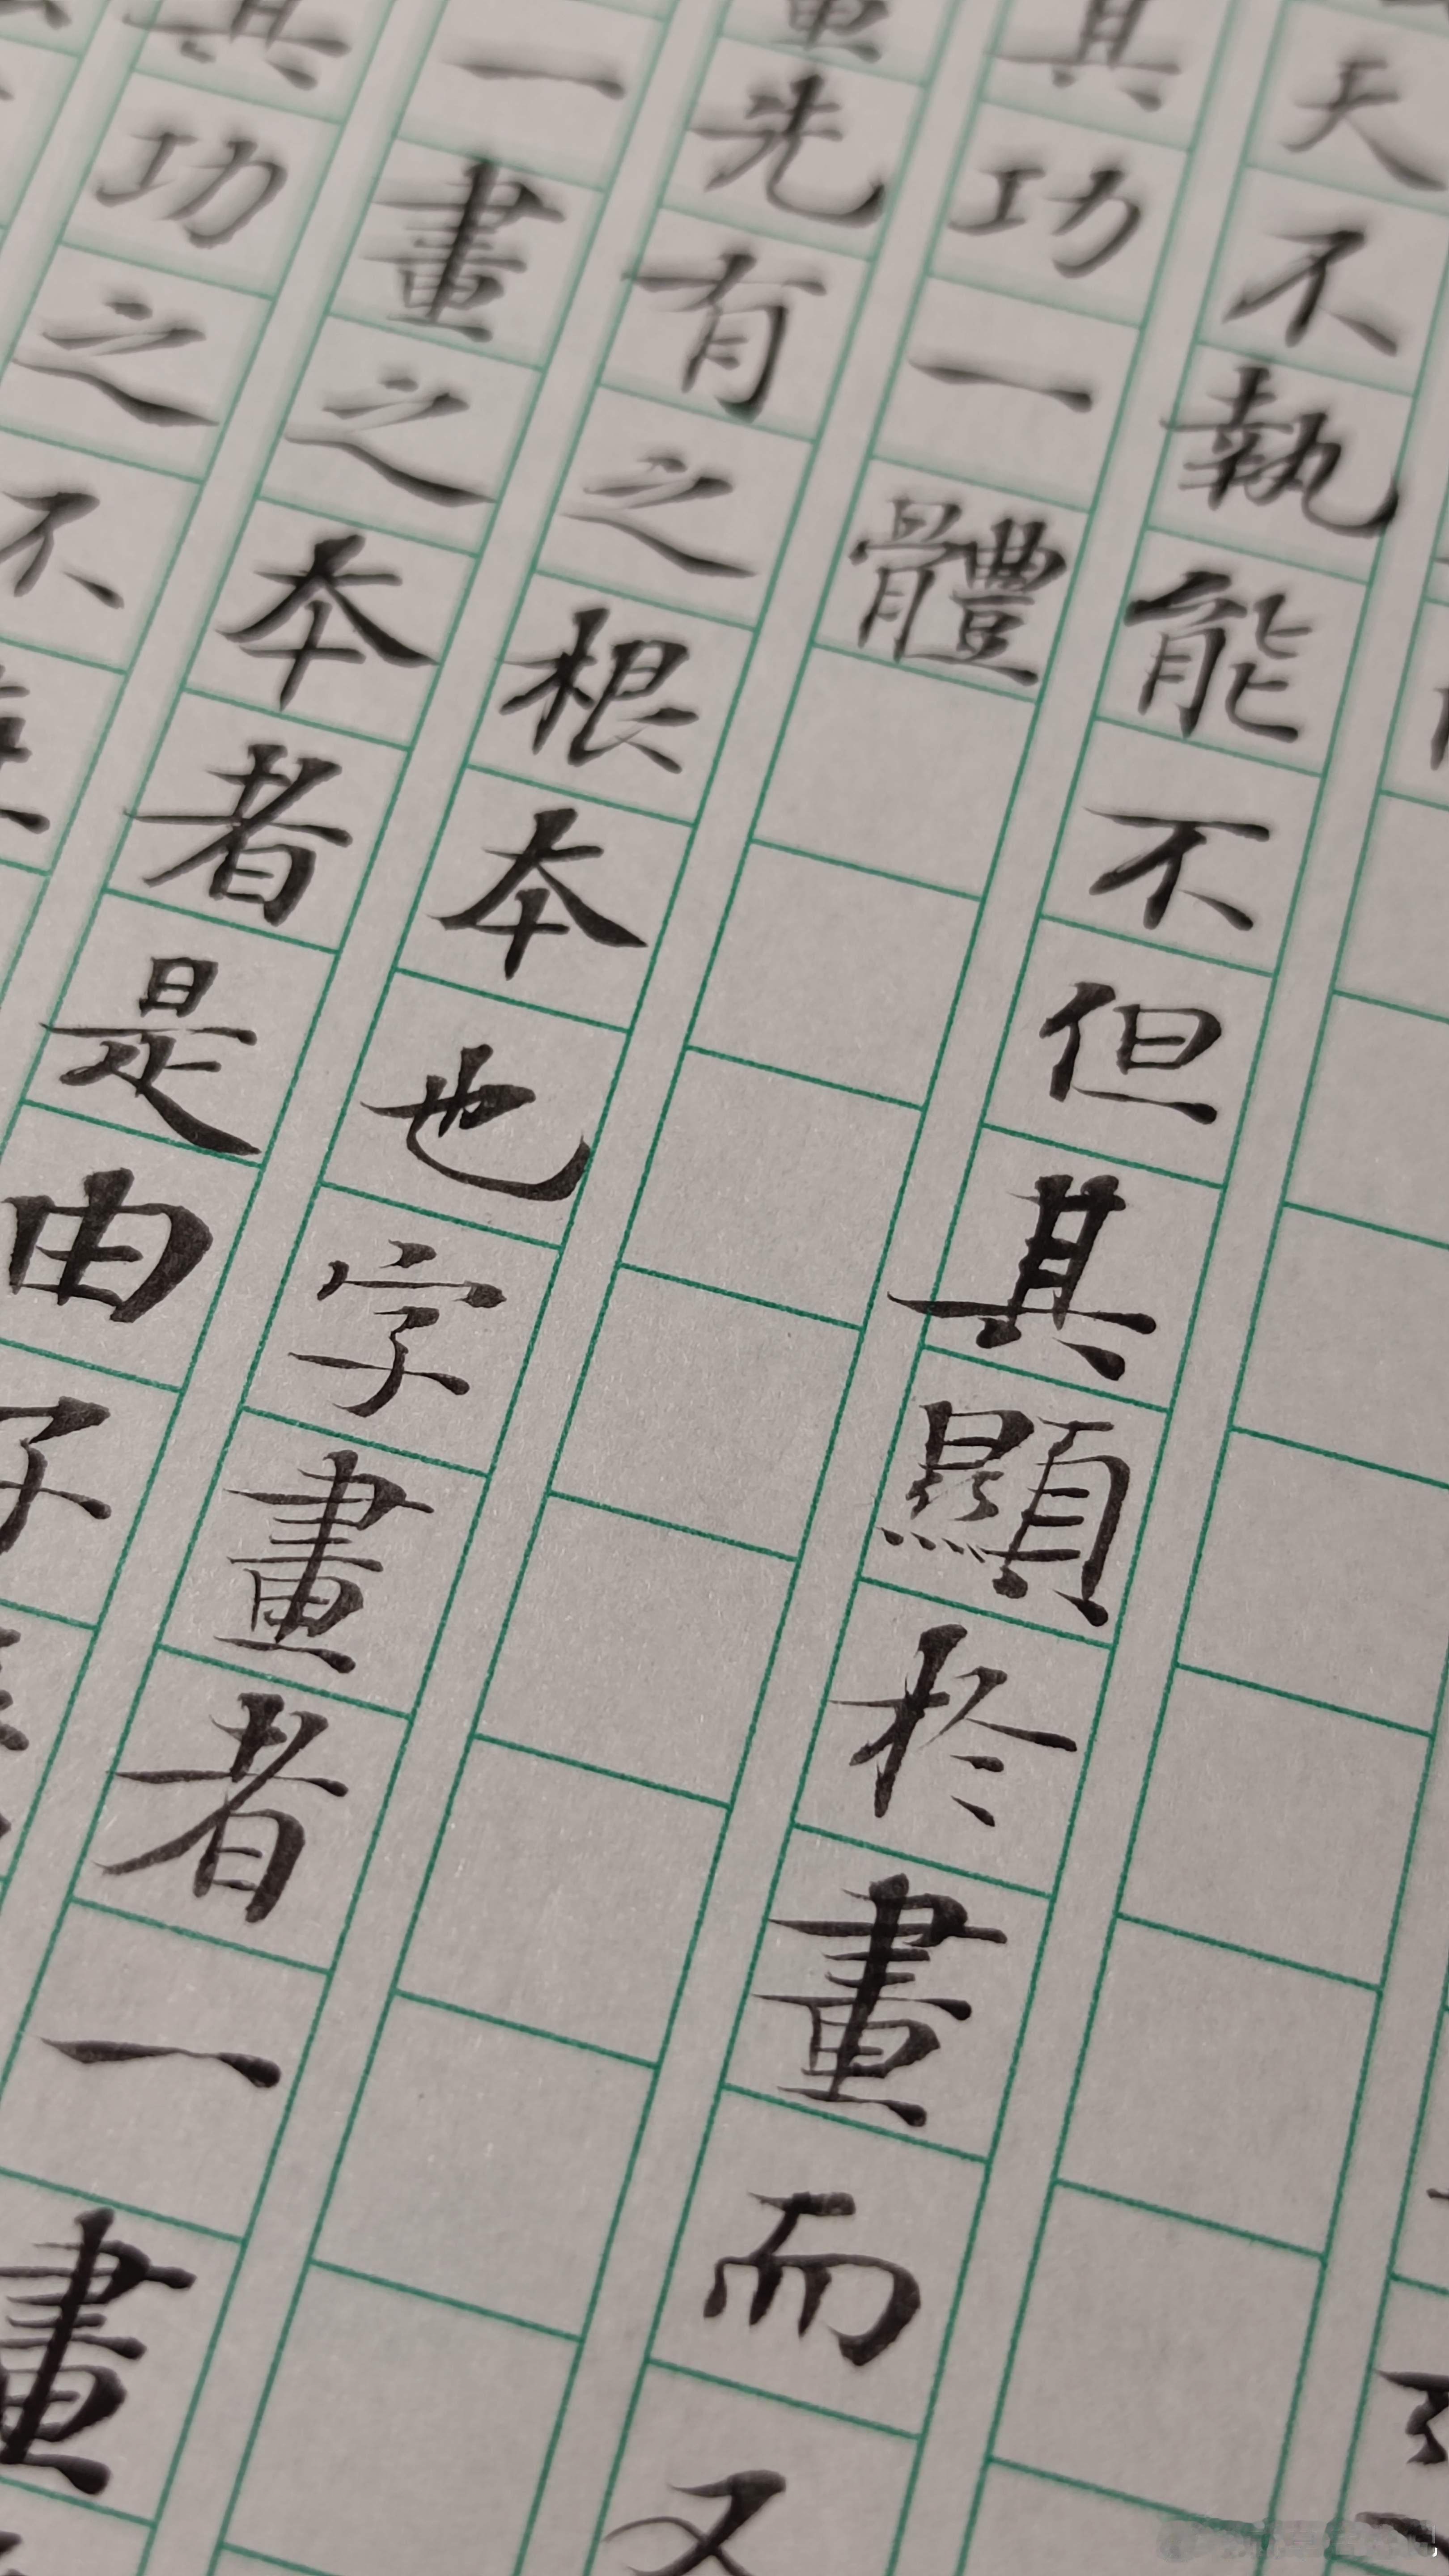 天不執能不但其顯於畫而又
其功一體
畫先有之根本也字畫者一畫
一畫之本者是由子
其功之不